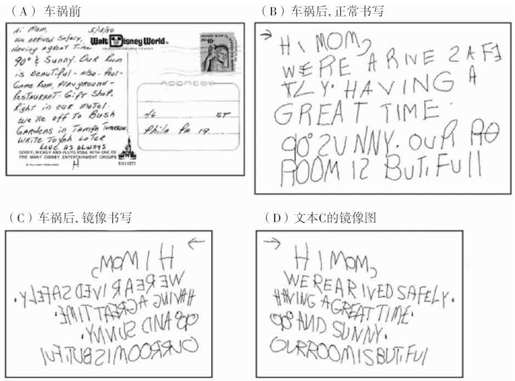 (A) 车祸前
Hi Mom,
We arrived Safely,
Having a great Time
90° & Sunny. Our Room
is beautiful - Also - Pool-
Game Room, Playground-
Restaurant Gift Shop.
Right in our motel
We're off to Bush
Gardens in Tampa Tomorrow
Write To you Later
Love as always
Walt Disney World
ADDRESS
ST
Phila Pa 19
(B) 车祸后,正常书写
→
HI MOM,
WE'RE ARIVE SAFE
TLY. HAVING A
GREAT TIME.
90° SUNNY. OUR RO
ROOM IS BUTIFUll
(C) 车祸后,镜像书写
←
HI MOM,
WE'RE ARIVED SAFELY.
HAVING A GREAT TIME.
90° AND SUNNY.
OUR ROOM IS BUTIFUl
(D) 文本C的镜像图
→
HI MOM,
WE'RE ARIVED SAFELY.
HAVING A GREAT TIME.
90° AND SUNNY.
OUR ROOM IS BUTIFUl